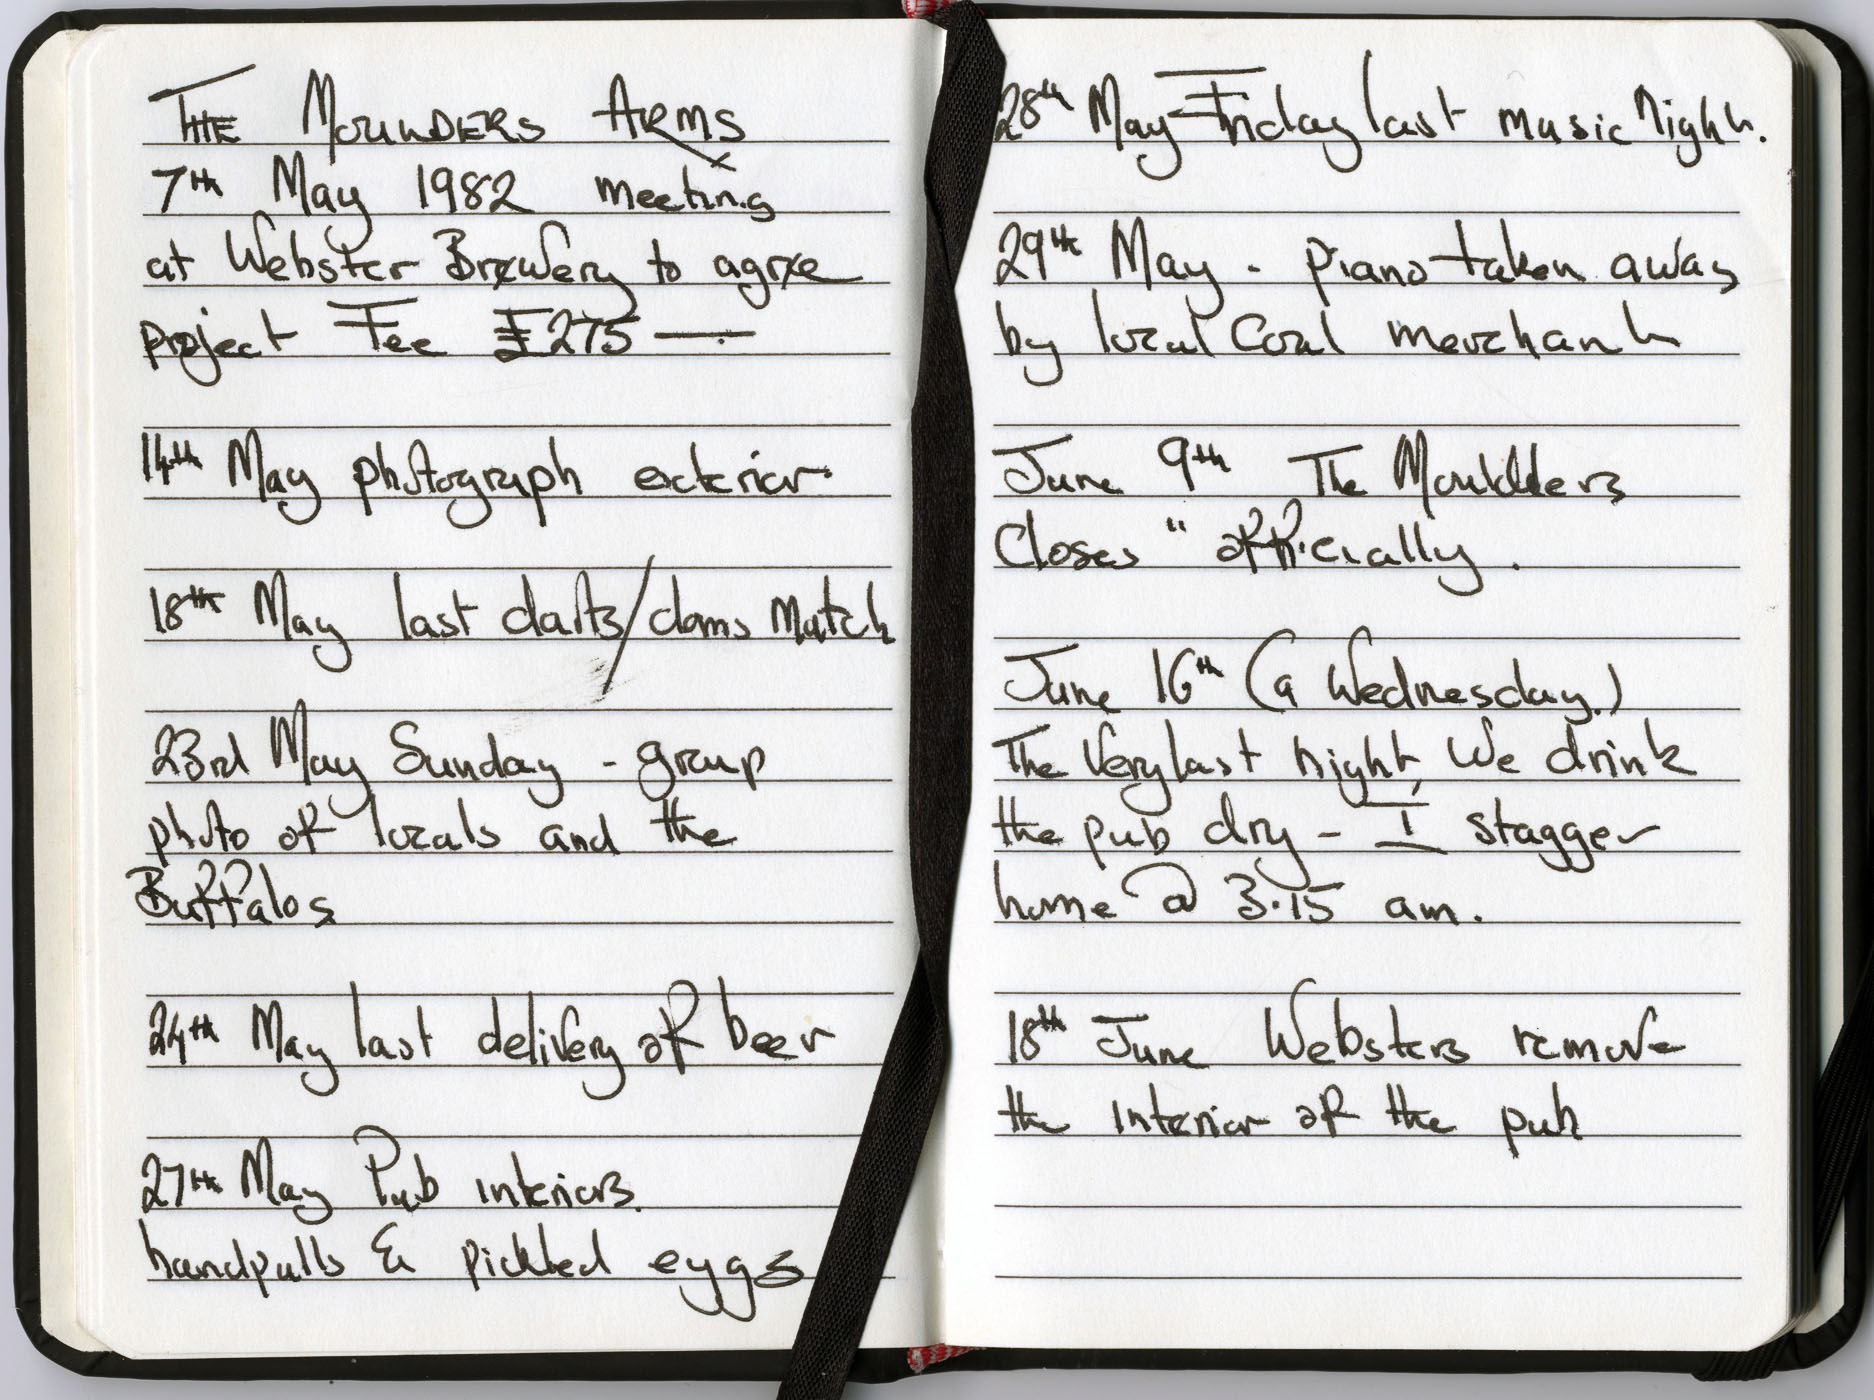 THE MOUNDERS ARMS
7th May 1982 meeting
at Webster Brewery to agree
project Fee £275 —
14th May photograph exterior.
18th May last darts/doms Match
23rd May Sunday - group
photo of locals and the
Buffalos
24th May last delivery of beer
27th May Pub interiors.
handpulls & pickled eggs
28th May Friday last music night.
29th May - piano taken away
by local Coal merchant
June 9th The Moulders
Closes "officially.
June 16th (a Wednesday.)
The Very last night, We drink
the pub dry - I stagger
home @ 3.15 am.
18th June Websters remove
the interior of the pub